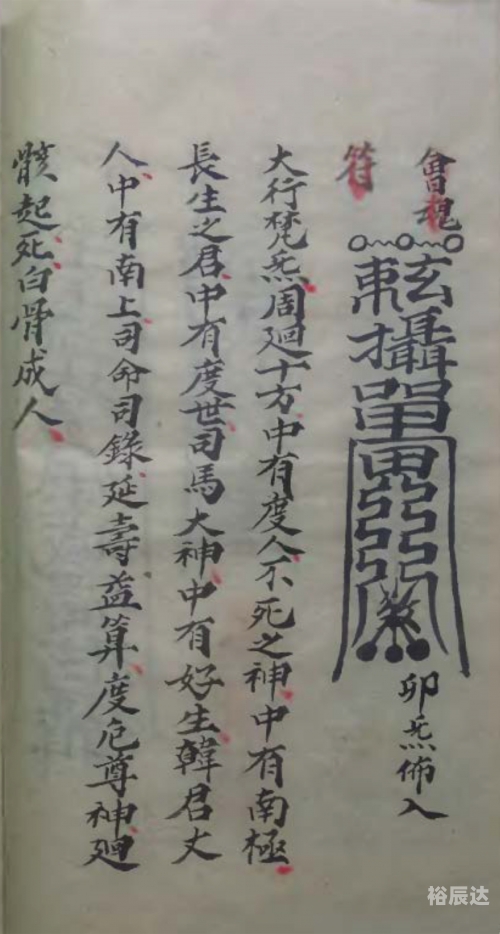 會魂
符
攝
卯炁佈入
大行梵炁周廻十方中有度人不死之神中有南極
長生之君中有度世司馬大神中有好生韓君丈
人中有南上司命司錄延壽益算度厄尊神廻
骸起死白骨成人
裕辰达